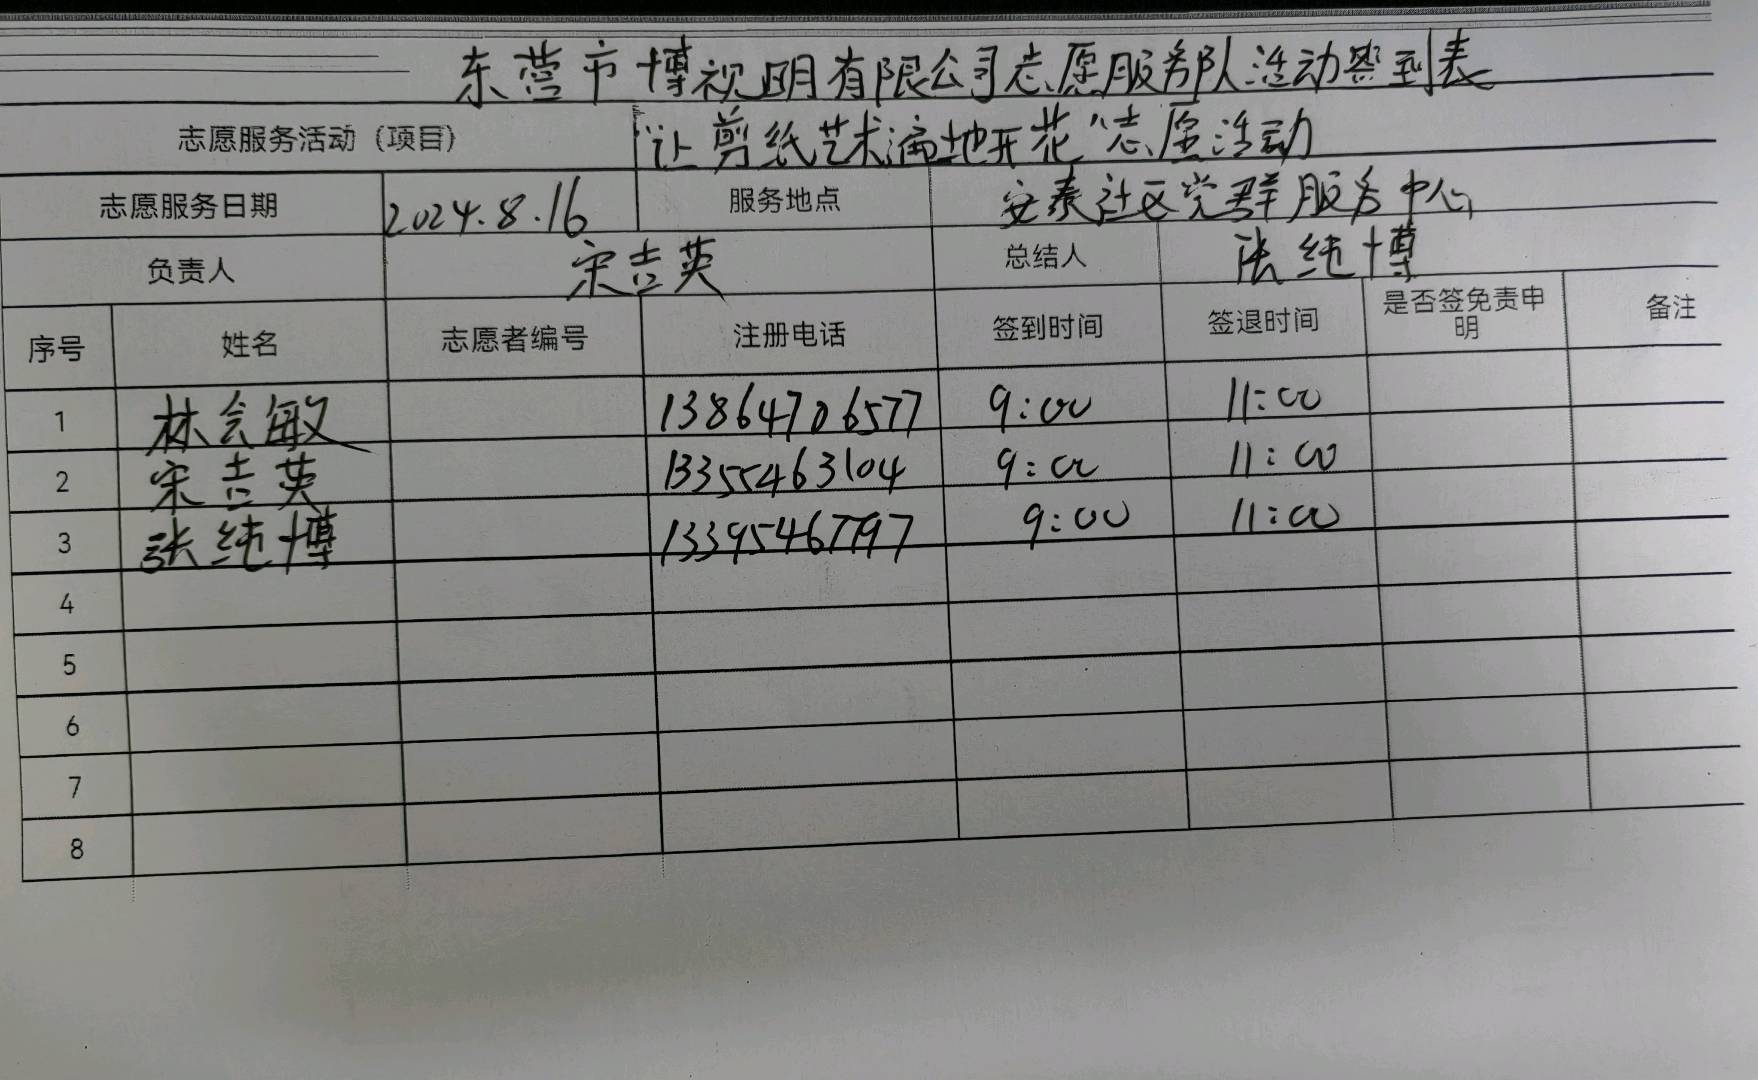 东营市博视明有限公司志愿服务队活动签到表
志愿服务活动（项目） “让剪纸艺术遍地开花”志愿活动
志愿服务日期 2024.8.16 服务地点 安泰社区党群服务中心
负责人 宋吉英 总结人 张纯博
序号 姓名 志愿者编号 注册电话 签到时间 签退时间 是否签免责申明 备注
1 林会敏 13864706577 9:00 11:00
2 宋吉英 13355463104 9:00 11:00
3 张纯博 13395467797 9:00 11:00
4
5
6
7
8